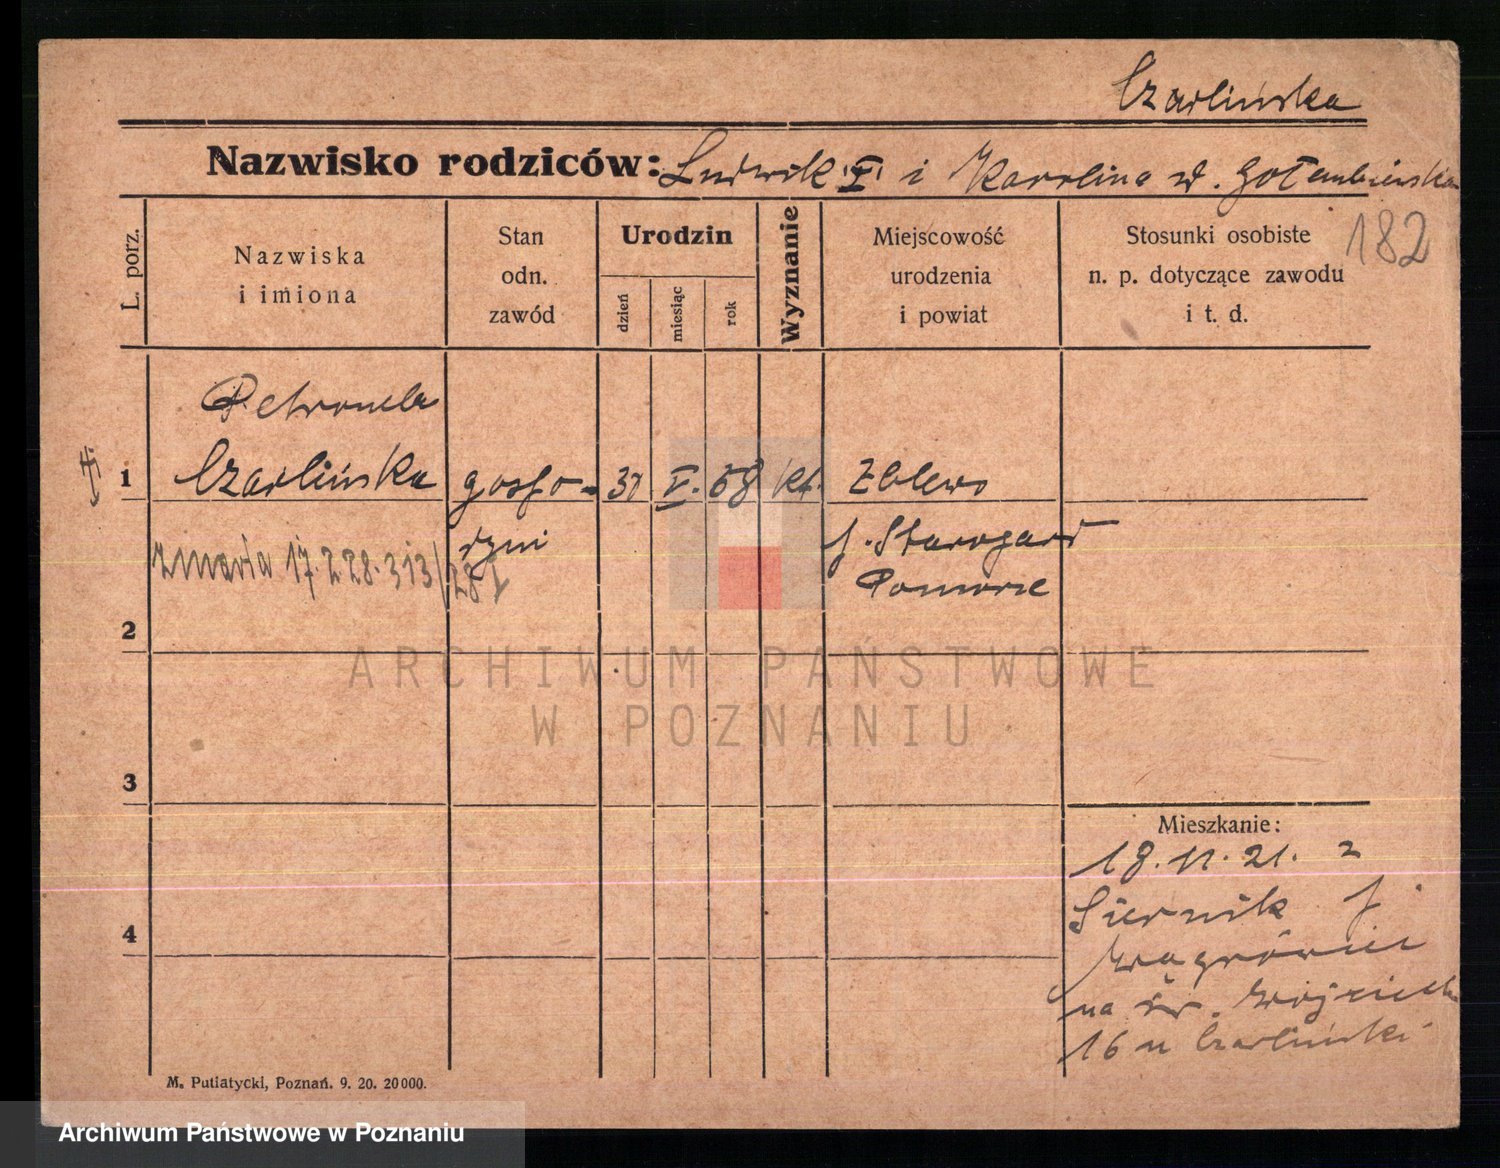 Czarlińska
Nazwisko rodziców: Ludwik i Karolina
182
L. porz.
Nazwiska
i imiona
Stan
odn.
zawód
Urodzin
dzień
miesiąc
rok
Wyznanie
Miejscowość
urodzenia
i powiat
Stosunki osobiste
n. p. dotyczące zawodu
i t. d.
Petronela
1
Czarlińska
gospo-
31
V.
58
kt.
Zblewo
dyni
p. Starogard
zmarła 17.2.28. 313/281
Pomorze
2
ARCHIWUM PAŃSTWOWE
W POZNANIU
3
Mieszkanie:
18.11.21. z
Siernik p.
4
Wągrówiec
na św. Wojciech
16 u Czarliński
M. Putiatycki, Poznań. 9. 20. 20000.
Archiwum Państwowe w Poznaniu